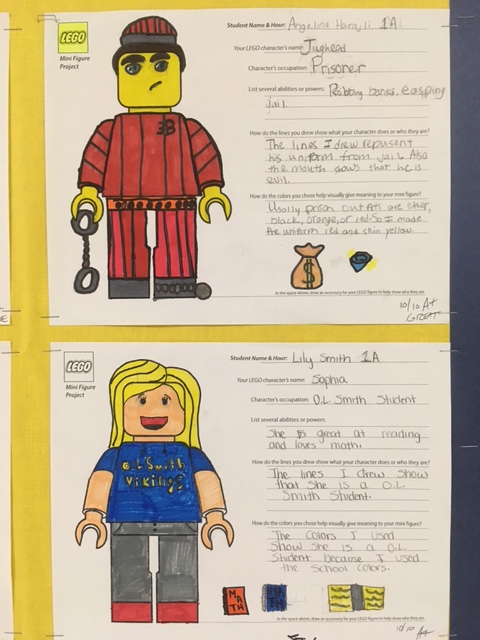 LEGO
Mini Figure
Project
33
Student Name & Hour: Angelina 1A
Your LEGO character's name: Jughead
Character's occupation: Prisoner
List several abilities or powers: Robbing banks, easpring
Jail.
How do the lines you drew show what your character does or who they are?
The lines I drew repusent
his uniform from jail. Also
the mouth shows that he is
evil.
How do the colors you chose help visually give meaning to your mini figure?
Usally prison outfits are ether,
black, orange, or red. So I made
the uniform red and skin yellow.
$
In the space above, draw an accessory for your LEGO figure to help show who they are.
10/10 A+
GREAT
LEGO
Mini Figure
Project
O.L Smith
Vikings
Student Name & Hour: Lily Smith 1A
Your LEGO character's name: Sophia
Character's occupation: O.L Smith Student
List several abilities or powers:
She is great at reading
and loves math.
How do the lines you drew show what your character does or who they are?
The lines I drew show
that She is a O.L.
Smith Student.
How do the colors you chose help visually give meaning to your mini figure?
The colors I used
Show She is a O.L
Student because I used
the School colors.
MATH
In the space above, draw an accessory for your LEGO figure to help show who they are.
10/10 A+